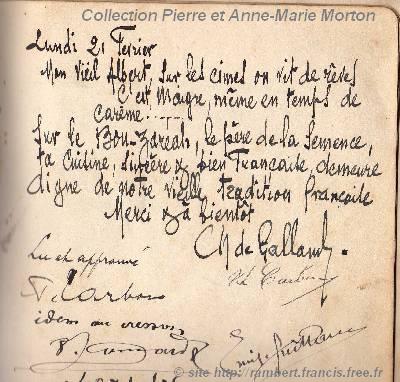 Collection Pierre et Anne-Marie Morton
Lundi 21 Février
Mon Vieil Albert, Sur les cimes on vit de rêves
C'est Maigre, même en temps de
carême!...
Sur le Bou-Zaréah, le père de la Semence,
ta Cuisine, sincère & bien Française, demeure
digne de notre vieille tradition française
Merci & à bientôt
Ch de Galland.
Lu et approuvé
idem au cresson
© site http://rambert.francis.free.fr